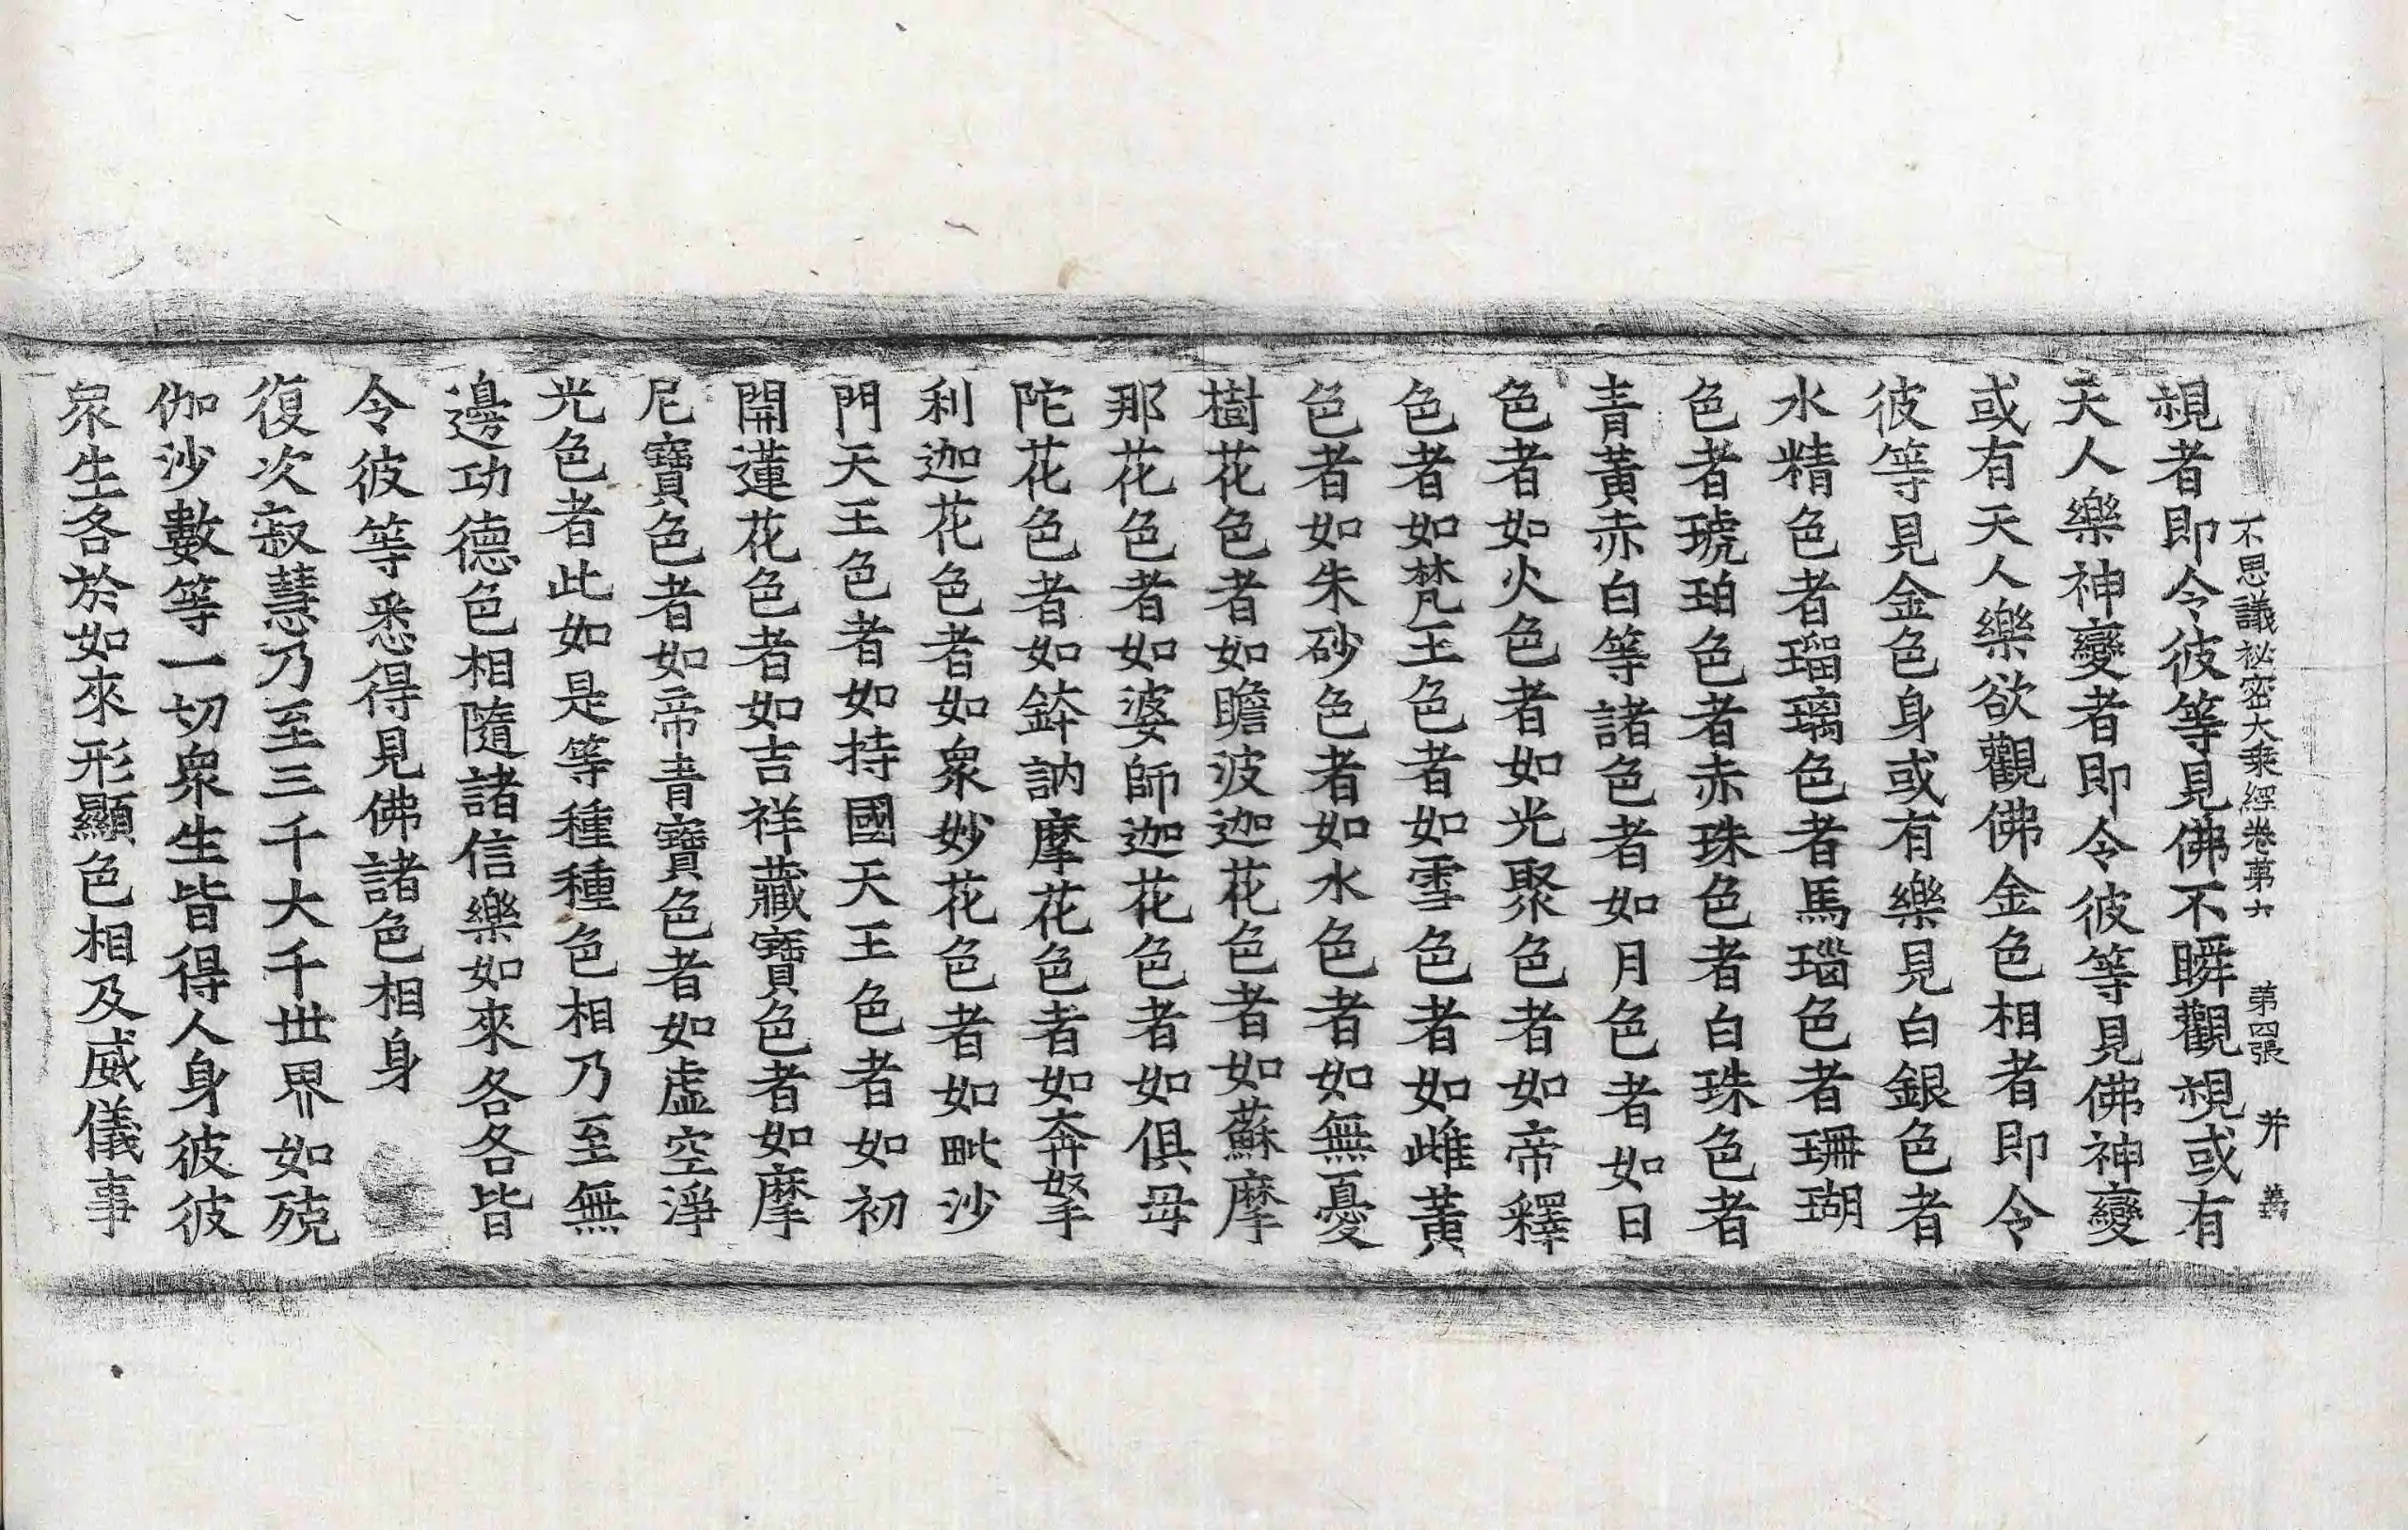 不思議祕密大乘經卷第六 第四張 并
視者即令彼等見佛不瞬觀視或有
天人樂神變者即令彼等見佛神變
或有天人樂欲觀佛金色相者即令
彼等見金色身或有樂見白銀色者
水精色者瑠璃色者馬瑙色者珊瑚
色者琥珀色者赤珠色者白珠色者
青黃赤白等諸色者如月色者如日
色者如火色者如光聚色者如帝釋
色者如梵王色者如雪色者如雌黃
色者如朱砂色者如水色者如無憂
樹花色者如瞻波迦花色者如蘇摩
那花色者如婆師迦花色者如俱母
陀花色者如鉢訥摩花色者如奔拏
利迦花色者如衆妙花色者如毗沙
門天王色者如持國天王色者如初
開蓮花色者如吉祥藏寶色者如摩
尼寶色者如帝青寶色者如虛空淨
光色者此如是等種種色相乃至無
邊功德色相隨諸信樂如來各各皆
令彼等悉得見佛諸色相身
復次寂慧乃至三千大千世界如殑
伽沙數等一切衆生皆得人身彼彼
衆生各於如來形顯色相及威儀事